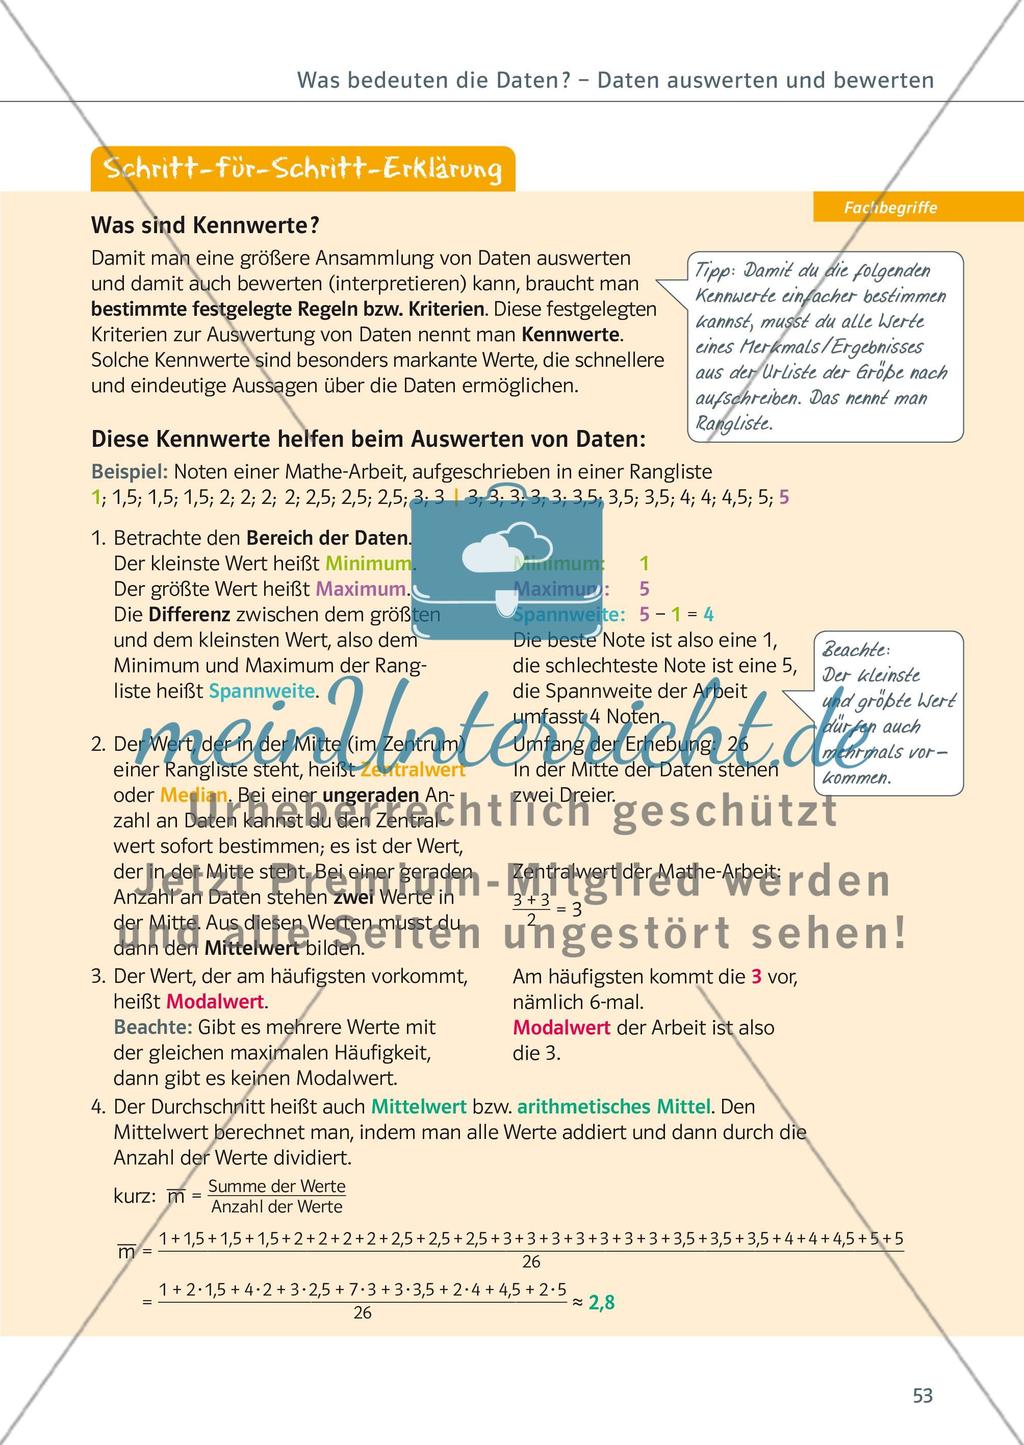 Was bedeuten die Daten? – Daten auswerten und bewerten
Schritt-für-Schritt-Erklärung
Fachbegriffe
Was sind Kennwerte?
Damit man eine größere Ansammlung von Daten auswerten
und damit auch bewerten (interpretieren) kann, braucht man
bestimmte festgelegte Regeln bzw. Kriterien. Diese festgelegten
Kriterien zur Auswertung von Daten nennt man Kennwerte.
Solche Kennwerte sind besonders markante Werte, die schnellere
und eindeutige Aussagen über die Daten ermöglichen.
Tipp: Damit du die folgenden
Kennwerte einfacher bestimmen
kannst, musst du alle Werte
eines Merkmals/Ergebnisses
aus der Urliste der Größe nach
aufschreiben. Das nennt man
Rangliste.
Diese Kennwerte helfen beim Auswerten von Daten:
Beispiel: Noten einer Mathe-Arbeit, aufgeschrieben in einer Rangliste
1; 1,5; 1,5; 1,5; 2; 2; 2; 2; 2,5; 2,5; 2,5; 3; 3 | 3; 3; 3; 3; 3; 3,5; 3,5; 3,5; 4; 4; 4,5; 5; 5
1. Betrachte den Bereich der Daten.
Der kleinste Wert heißt Minimum.
Der größte Wert heißt Maximum.
Die Differenz zwischen dem größten
und dem kleinsten Wert, also dem
Minimum und Maximum der Rang-
liste heißt Spannweite.
Minimum: 1
Maximum: 5
Spannweite: 5 – 1 = 4
Die beste Note ist also eine 1,
die schlechteste Note ist eine 5,
die Spannweite der Arbeit
umfasst 4 Noten.
Beachte:
Der kleinste
und größte Wert
dürfen auch
mehrmals vor-
kommen.
2. Der Wert, der in der Mitte (im Zentrum)
einer Rangliste steht, heißt Zentralwert
oder Median. Bei einer ungeraden An-
zahl an Daten kannst du den Zentral-
wert sofort bestimmen; es ist der Wert,
der in der Mitte steht. Bei einer geraden
Anzahl an Daten stehen zwei Werte in
der Mitte. Aus diesen Werten musst du
dann den Mittelwert bilden.
Umfang der Erhebung: 26
In der Mitte der Daten stehen
zwei Dreier.
Zentralwert der Mathe-Arbeit:
3 + 3
2
= 3
meinUnterricht.de
Urheberrechtlich geschützt
Jetzt Premium-Mitglied werden
und alle Seiten ungestört sehen!
3. Der Wert, der am häufigsten vorkommt,
heißt Modalwert.
Beachte: Gibt es mehrere Werte mit
der gleichen maximalen Häufigkeit,
dann gibt es keinen Modalwert.
Am häufigsten kommt die 3 vor,
nämlich 6-mal.
Modalwert der Arbeit ist also
die 3.
4. Der Durchschnitt heißt auch Mittelwert bzw. arithmetisches Mittel. Den
Mittelwert berechnet man, indem man alle Werte addiert und dann durch die
Anzahl der Werte dividiert.
kurz: m̅ = Summe der Werte
Anzahl der Werte
m̅ = 1 + 1,5 + 1,5 + 1,5 + 2 + 2 + 2 + 2 + 2,5 + 2,5 + 2,5 + 3 + 3 + 3 + 3 + 3 + 3 + 3 + 3,5 + 3,5 + 3,5 + 4 + 4 + 4,5 + 5 + 5
26
= 1 + 2 · 1,5 + 4 · 2 + 3 · 2,5 + 7 · 3 + 3 · 3,5 + 2 · 4 + 4,5 + 2 · 5
26
≈ 2,8
53